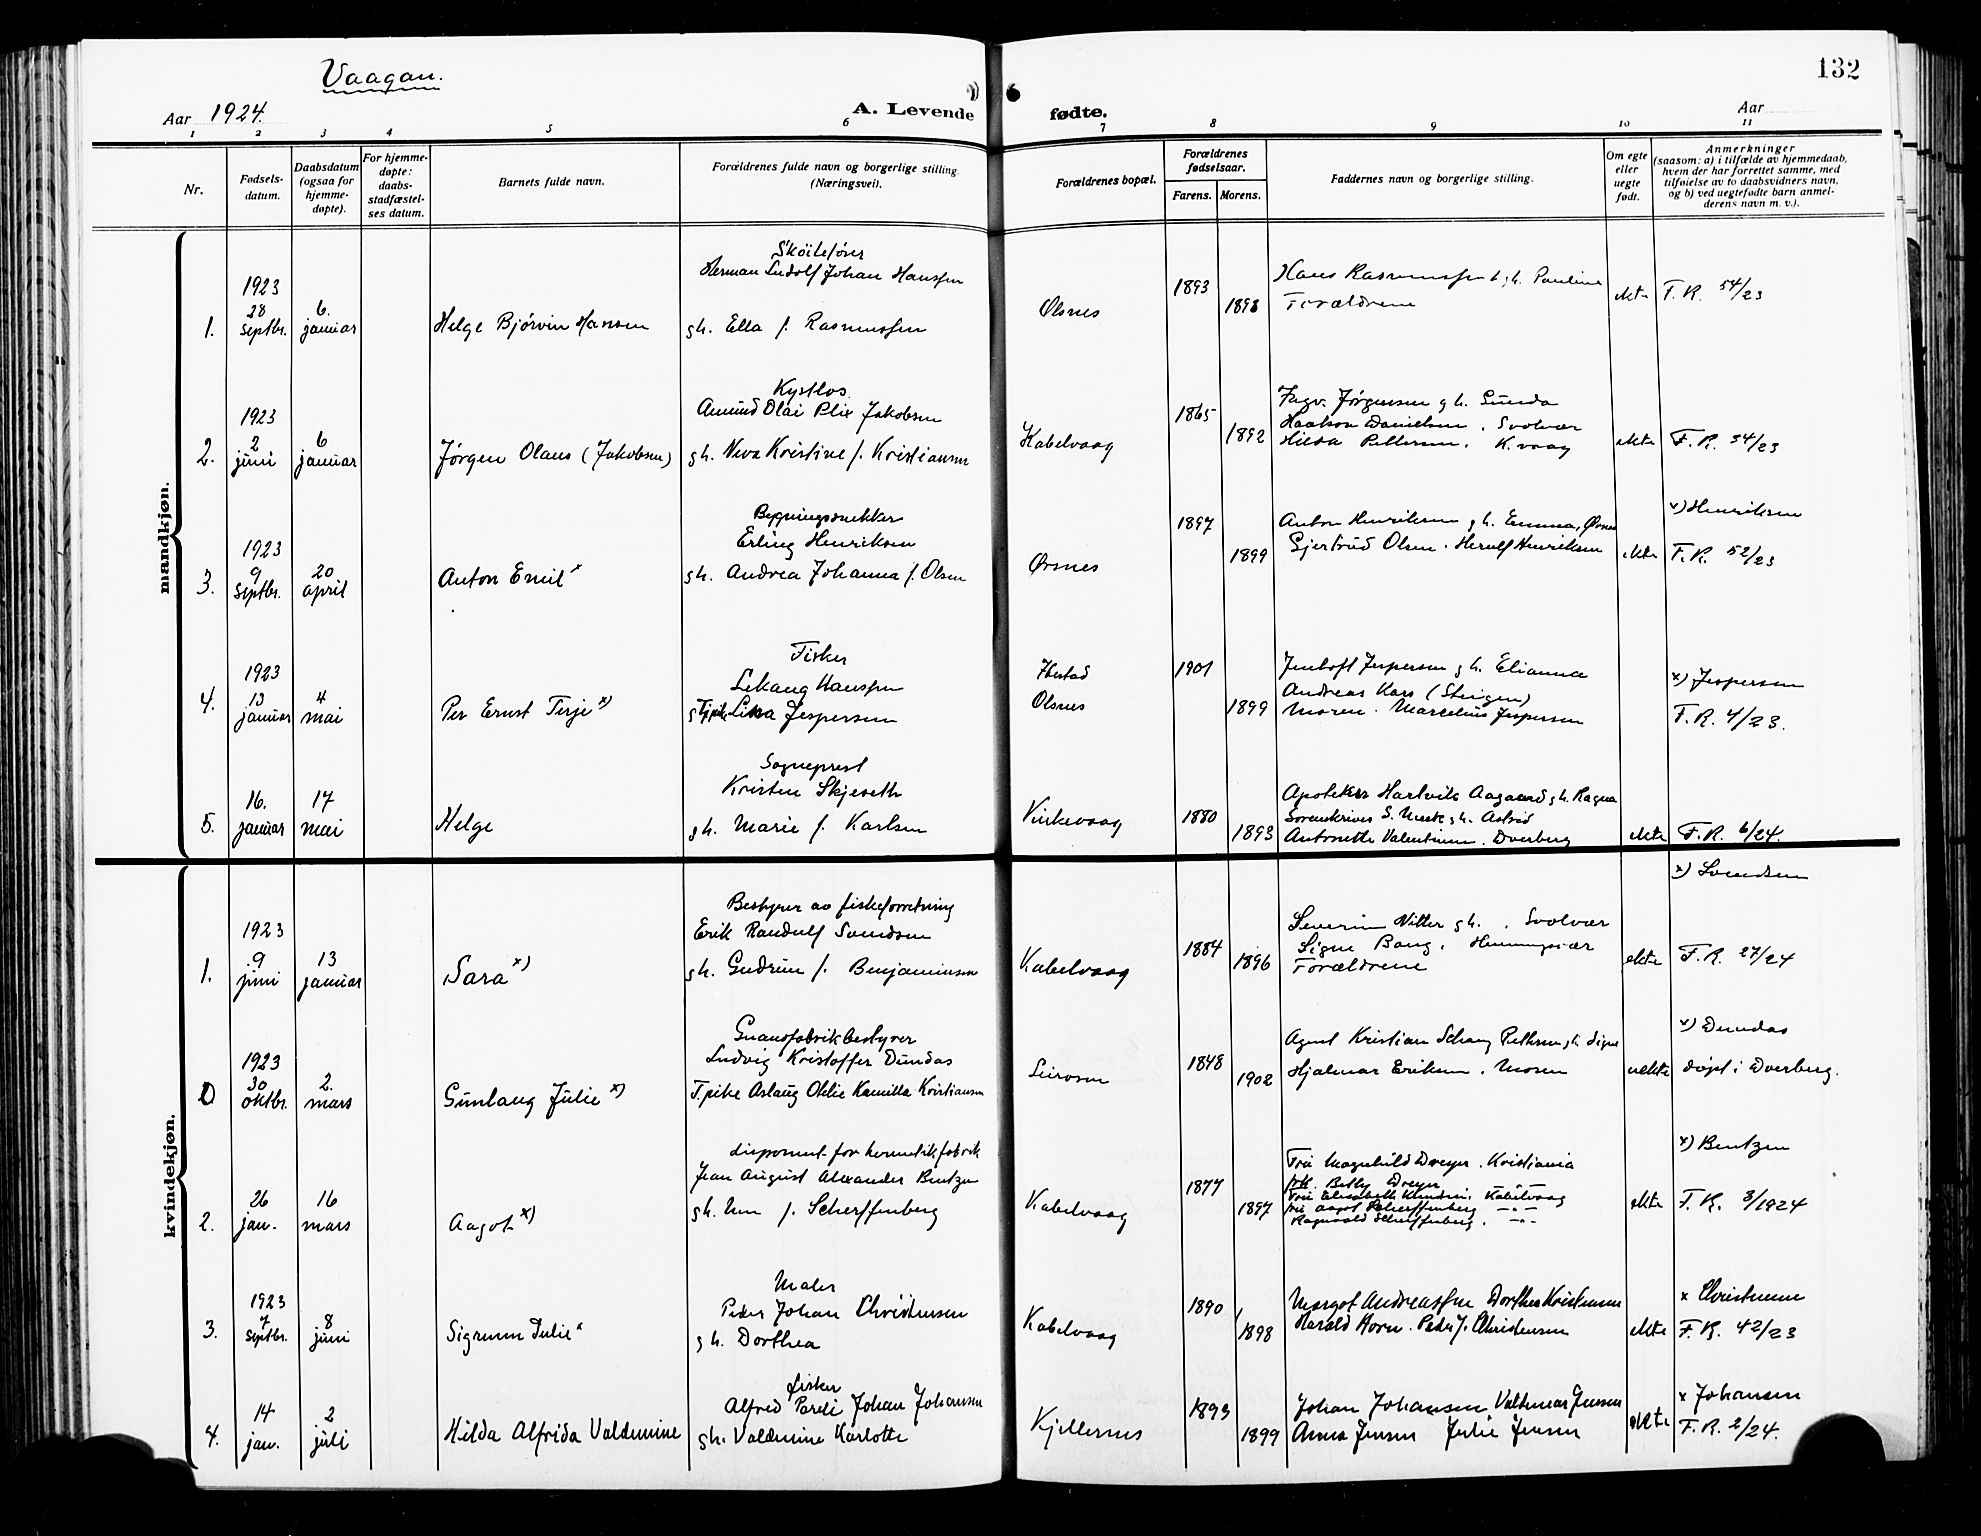 Vaagan.
132
Aar 1924.
A. Levende fødte.
Aar
1 2 3 4 5 6 7 8 9 10 11
Nr.
Fødsels-
datum.
Daabsdatum
(ogsaa for
hjemme-
døpte).
For hjemme-
døpte:
daabs-
stadfæstel-
ses datum.
Barnets fulde navn.
Forældrenes fulde navn og borgerlige stilling.
(Næringsvei).
Forældrenes bopæl.
Forældrenes
fødselsaar.
Farens. Morens.
Faddernes navn og borgerlige stilling.
Om egte
eller
uegte
født.
Anmerkninger
(saasom: a) i tilfælde av hjemmedaab,
hvem der har forrettet samme, med
tilføielse av to daabsvidners navn,
og b) ved uegtefødte barn anmel-
derens navn m. v.).
mandkjøn.
1.
1923
28
septbr.
6.
januar
Helge Bjørvin Hansen
Skøitefører
Herman Ludolf Johan Hanssen
gh. Ella f. Rasmussen
Olsnes
1893
1898
Hans Rasmussen & gh. Pauline
Forældrene
ekte
F. R. 54/23
2.
1923
2
juni
6
januar
Jørgen Olaus (Jakobsen)
Kystlos
Amund Olai Plix Jakobsen
gh. Neva Kristine f. Kristiansen
Kabelvaag
1865
1892
Ingv. Jørgensen gh. Gunda
Haakon Danielsen, Svolvær
Hilda Pettersen. K.vaag
ekte
F. R. 34/23
3.
1923
9
septbr.
20
april
Anton Emil x
Bygningssnekker
Erling Henriksen
gh. Andrea Johanna f. Olsen
Ørsnes
1897
1899
Anton Henriksen gh. Emma, Ørsnes
Gjertrud Olsen. Herulf Henriksen
ekte
x) Henriksen
F. R. 52/23
4.
1923
13
januar
4
mai
Per Ernst Terje x)
Fisker
Lekang Hanssen
Tjpike Lina Jespersen
Ibestad
Olsnes
1901
1899
Jentoft Jespersen gh. Elianna
Andreas Kars (Steigen)
Moren. Marcelius Jespersen
x) Jespersen
F. R. 4/23.
5.
16.
januar
17
mai
Helge
Sogneprest
Kristen Skjeseth
gh. Marie f. Karlsen
Kirkevaag
1880
1893
Apoteker Hartvik Aagaard gh. Ragna
Sorenskriver S. Munk gh. Astrid
Antonette Valentinsen. Dverberg
ekte
F. R. 6/24.
kvindekjøn.
1.
1923
9
juni
13
januar
Sara x)
Bestyrer av fiskeforretning
Erik Randulf Svendsen
gh. Gudrun f. Benjaminsen
Kabelvaag
1884
1896
Severin Nitter gh. , Svolvær
Signe Bang, Henningsvær
Forældrene
ekte
x) Svendsen
F. R. 27/24
0
1923
30
oktbr.
2.
mars
Gunlaug Julie x)
Guanofabrikbestyrer
Ludvig Kristoffer Dundas
T.pike Aslaug Otelie Kamilla Kristiansen
Leirosen
1848
1902
Agent Kristian Schang Pettersen gh. Signe
Hjalmar Eriksen. Moren
uekte
x) Dundas
døpt i Dverberg.
2.
26
jan.
16
mars
Aagot x)
disponent for hermetikfabrik
Jean August Alexander Bentzen
gh. Unn f. Scherffenberg
Kabelvaag
1877
1897
Fru Magnhild Dreyer. Kristiania
frk. Betty Dreyer —"—
fru Aagot Scherffenberg —"—
Ragnvald Scherffenberg. —"—
ekte
x) Bentzen
F. R. 3/1924
3.
1923
7
septbr.
8
juni
Sigrunn Julie x
Maler
Peder Johan Christensen
gh. Dorthea
Kabelvaag
1890
1898
Margot Andreassen Dorthea Kristensen
Harald Horn. Peder J. Christensen
ekte
x Christensen
F. R. 42/23
4.
14
jan.
2
juli
Hilda Alfrida Valdemine
fisker
Alfred Pareli Johan Johansen
gh. Valdemine Karlotte
Kjellernes
1893
1899
Johan Johansen Valdemar Jensen
Anna Jensen Julie Jensen
ekte
x Johansen
F. R. 2/24.